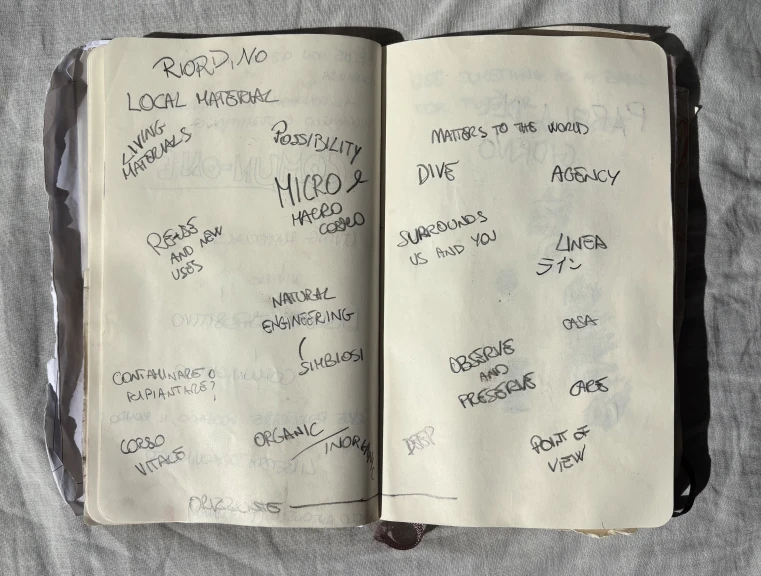 RIORDINO
LOCAL MATERIAL
LIVING
MATERIALS
POSSIBILITY
MICRO &
MACRO
COSMO
REUSE
AND NEW
USES
NATURAL
ENGINEERING
SIMBIOSI
CONTAMINARE O
RIPIANTARE?
CORSO
VITALE
ORGANIC
INORGANIC
ORIZZONTE
MATTERS TO THE WORLD
DIVE
AGENCY
SURROUNDS
US AND YOU
LINEA
ライン
CASA
OBSERVE
AND
PRESERVE
CARE
DEEP
POINT OF
VIEW